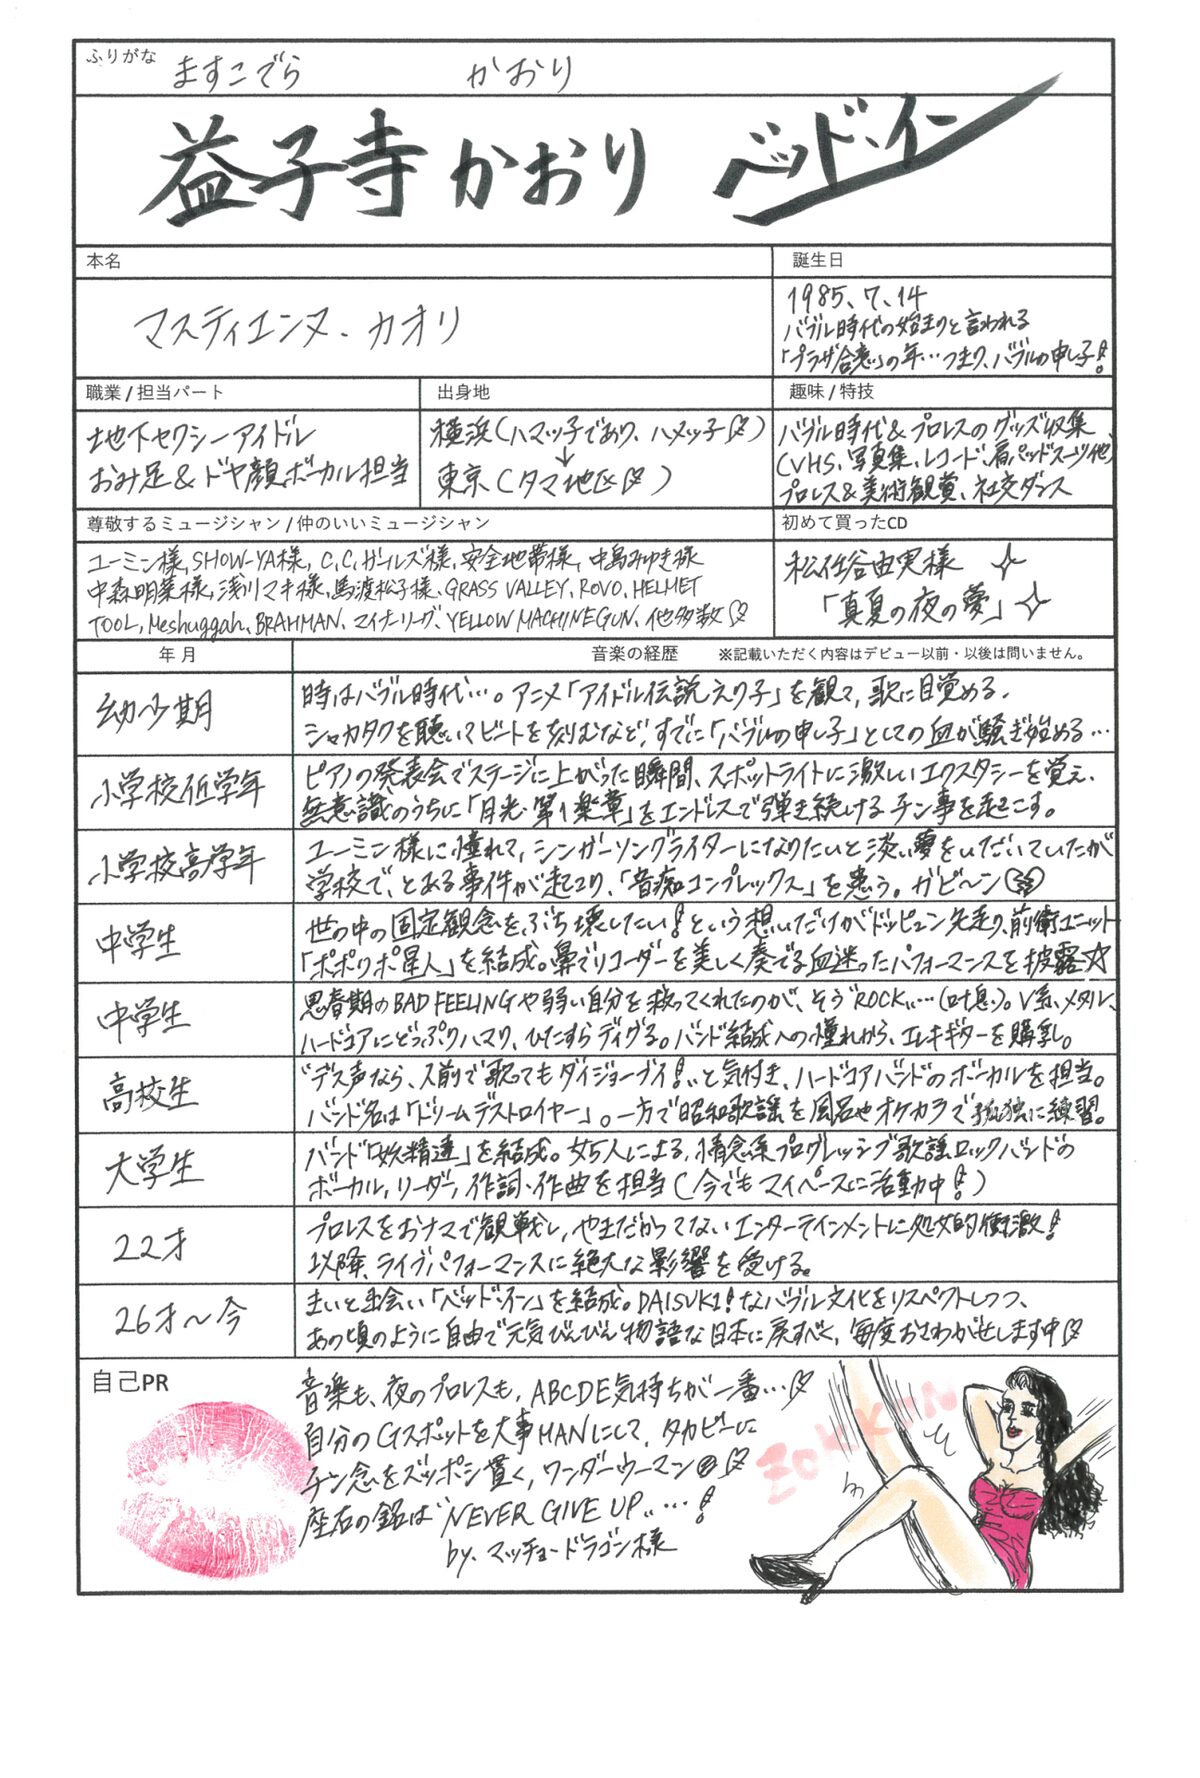 ふりがな ますこでら かおり
益子寺かおり ベッド・イン
本名
マスティエンヌ・カオリ
誕生日
1985、7、14
バブル時代の始まりと言われる
「プラザ合意」の年…つまり、バブルの申し子!
職業 / 担当パート
地下セクシーアイドル
おみ足&ドヤ顔ボーカル担当
出身地
横浜(ハマッ子であり、ハメッ子♡)
↓
東京(タマ地区♡)
趣味 / 特技
バブル時代&プロレスのグッズ収集
(VHS、写真集、レコード、肩パッドスーツ他)
プロレス&美術観賞、社交ダンス
尊敬するミュージシャン / 仲のいいミュージシャン
ユーミン様、SHOW-YA様、C.C.ガールズ様、安全地帯様、中島みゆき様
中森明菜様、浅川マキ様、馬渡松子様、GRASS VALLEY、ROVO、HELMET
TOOL、Meshuggah、BRAHMAN、マイナーリーグ、YELLOW MACHINEGUN、他多数♡
初めて買ったCD
松任谷由実様
「真夏の夜の夢」
年 月
音楽の経歴 ※記載いただく内容はデビュー以前・以後は問いません。
幼少期
時はバブル時代…。アニメ「アイドル伝説えり子」を観て、歌に目覚める。
シャカタクを聴いてビートを刻むなど、すでに「バブルの申し子」としての血が騒ぎ始める…
小学校低学年
ピアノの発表会でステージに上がった瞬間、スポットライトに激しいエクスタシーを覚え、
無意識のうちに「月光・第1楽章」をエンドレスで弾き続けるチン事を起こす。
小学校高学年
ユーミン様に憧れて、シンガーソングライターになりたいと淡い夢をいだいていたが
学校で、とある事件が起こり、「音痴コンプレックス」を患う。ガビ〜ン
中学生
世の中の固定観念をぶち壊したい!という想いだけがドッピュン先走り、前衛ユニット
「ポポリポ星人」を結成。鼻でリコーダーを美しく奏でる血迷ったパフォーマンスを披露☆
中学生
思春期のBAD FEELINGや弱い自分を救ってくれたのが、そう"ROCK"…(吐息)。V系、メタル、
ハードコアにどっぷりハマり、ひたすらディグる。バンド結成への憧れから、エレキギターを購乳。
高校生
"デス声なら、人前で歌ってもダイジョーブイ!"と気付き、ハードコアバンドのボーカルを担当。
バンド名は「ドリームデストロイヤー」。一方で昭和歌謡を風呂やオケカラで孤独に練習。
大学生
バンド「妖精達」を結成。女5人による、情念系プログレッシブ歌謡ロックバンドの
ボーカル、リーダー、作詞・作曲を担当(今でもマイペースに活動中!)
22才
プロレスをおナマで観戦し、やまだかつてないエンターテインメントに処女的衝激!
以降、ライブパフォーマンスに絶大な影響を受ける。
26才〜今
まいと出会い「ベッド・イン」を結成。DAISUKI!なバブル文化をリスペクトしつつ、
あの頃のように自由で元気びんびん物語な日本に戻すべく、毎度おさわがせします中♡
自己PR
音楽も、夜のプロレスも、ABCDE気持ちが一番…♡
自分のGスポットを大事MANにして、タカビーに
チン念をズッポシ貫く、ワンダーウーマン♡
座右の銘は"NEVER GIVE UP"…!
by、マッチョ・ドラゴン様
ZOKKON